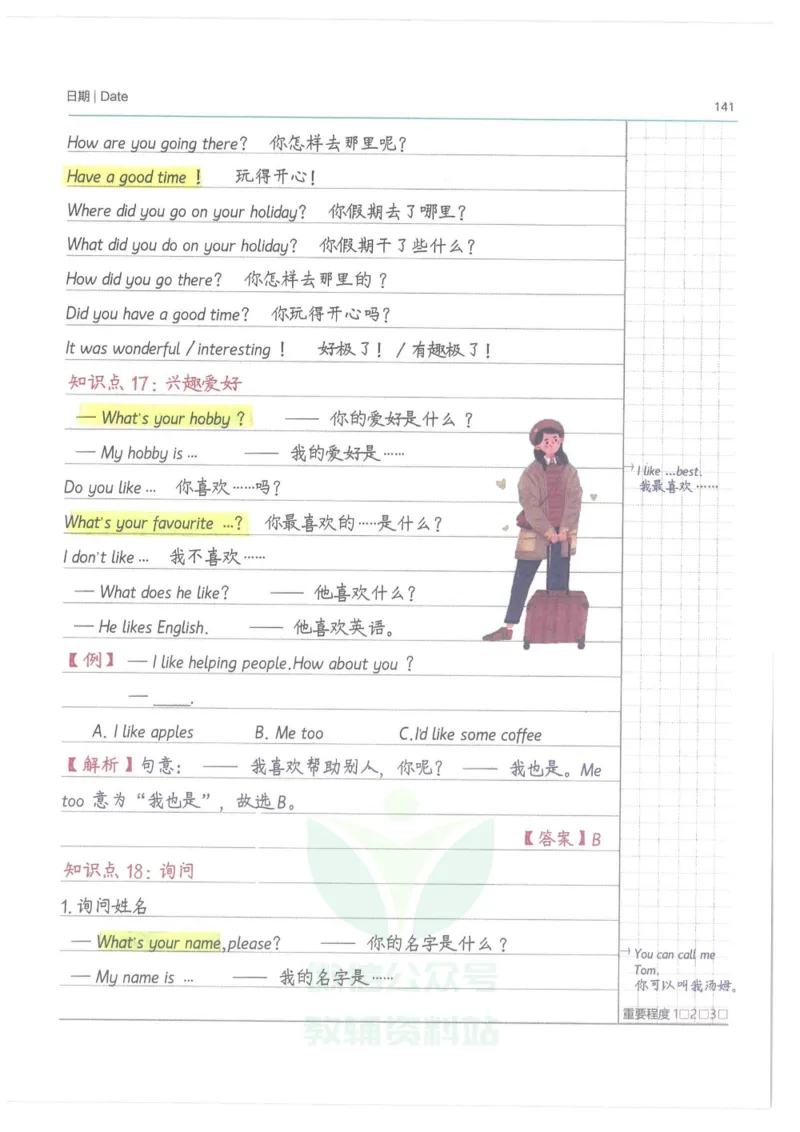 日期 | Date
141
How are you going there? 你怎样去那里呢?
Have a good time ! 玩得开心!
Where did you go on your holiday? 你假期去了哪里?
What did you do on your holiday? 你假期干了些什么?
How did you go there? 你怎样去那里的 ?
Did you have a good time? 你玩得开心吗?
It was wonderful / interesting ! 好极了! / 有趣极了!
知识点 17: 兴趣爱好
— What's your hobby ? —— 你的爱好是什么 ?
— My hobby is … —— 我的爱好是……
→ I like …best.
我最喜欢……
Do you like … 你喜欢……吗?
What's your favourite …? 你最喜欢的……是什么?
I don't like … 我不喜欢……
— What does he like? —— 他喜欢什么?
— He likes English. —— 他喜欢英语。
【例】 — I like helping people.How about you ?
— ____.
A. I like apples B. Me too C.I'd like some coffee
【解析】句意: —— 我喜欢帮助别人, 你呢? —— 我也是。Me
too 意为“我也是”, 故选B。
【答案】B
知识点 18: 询问
1. 询问姓名
— What's your name,please? —— 你的名字是什么 ?
— My name is … —— 我的名字是……
→ You can call me
Tom.
你可以叫我汤姆。
微信公众号
教辅资料站
重要程度 1□2□3□